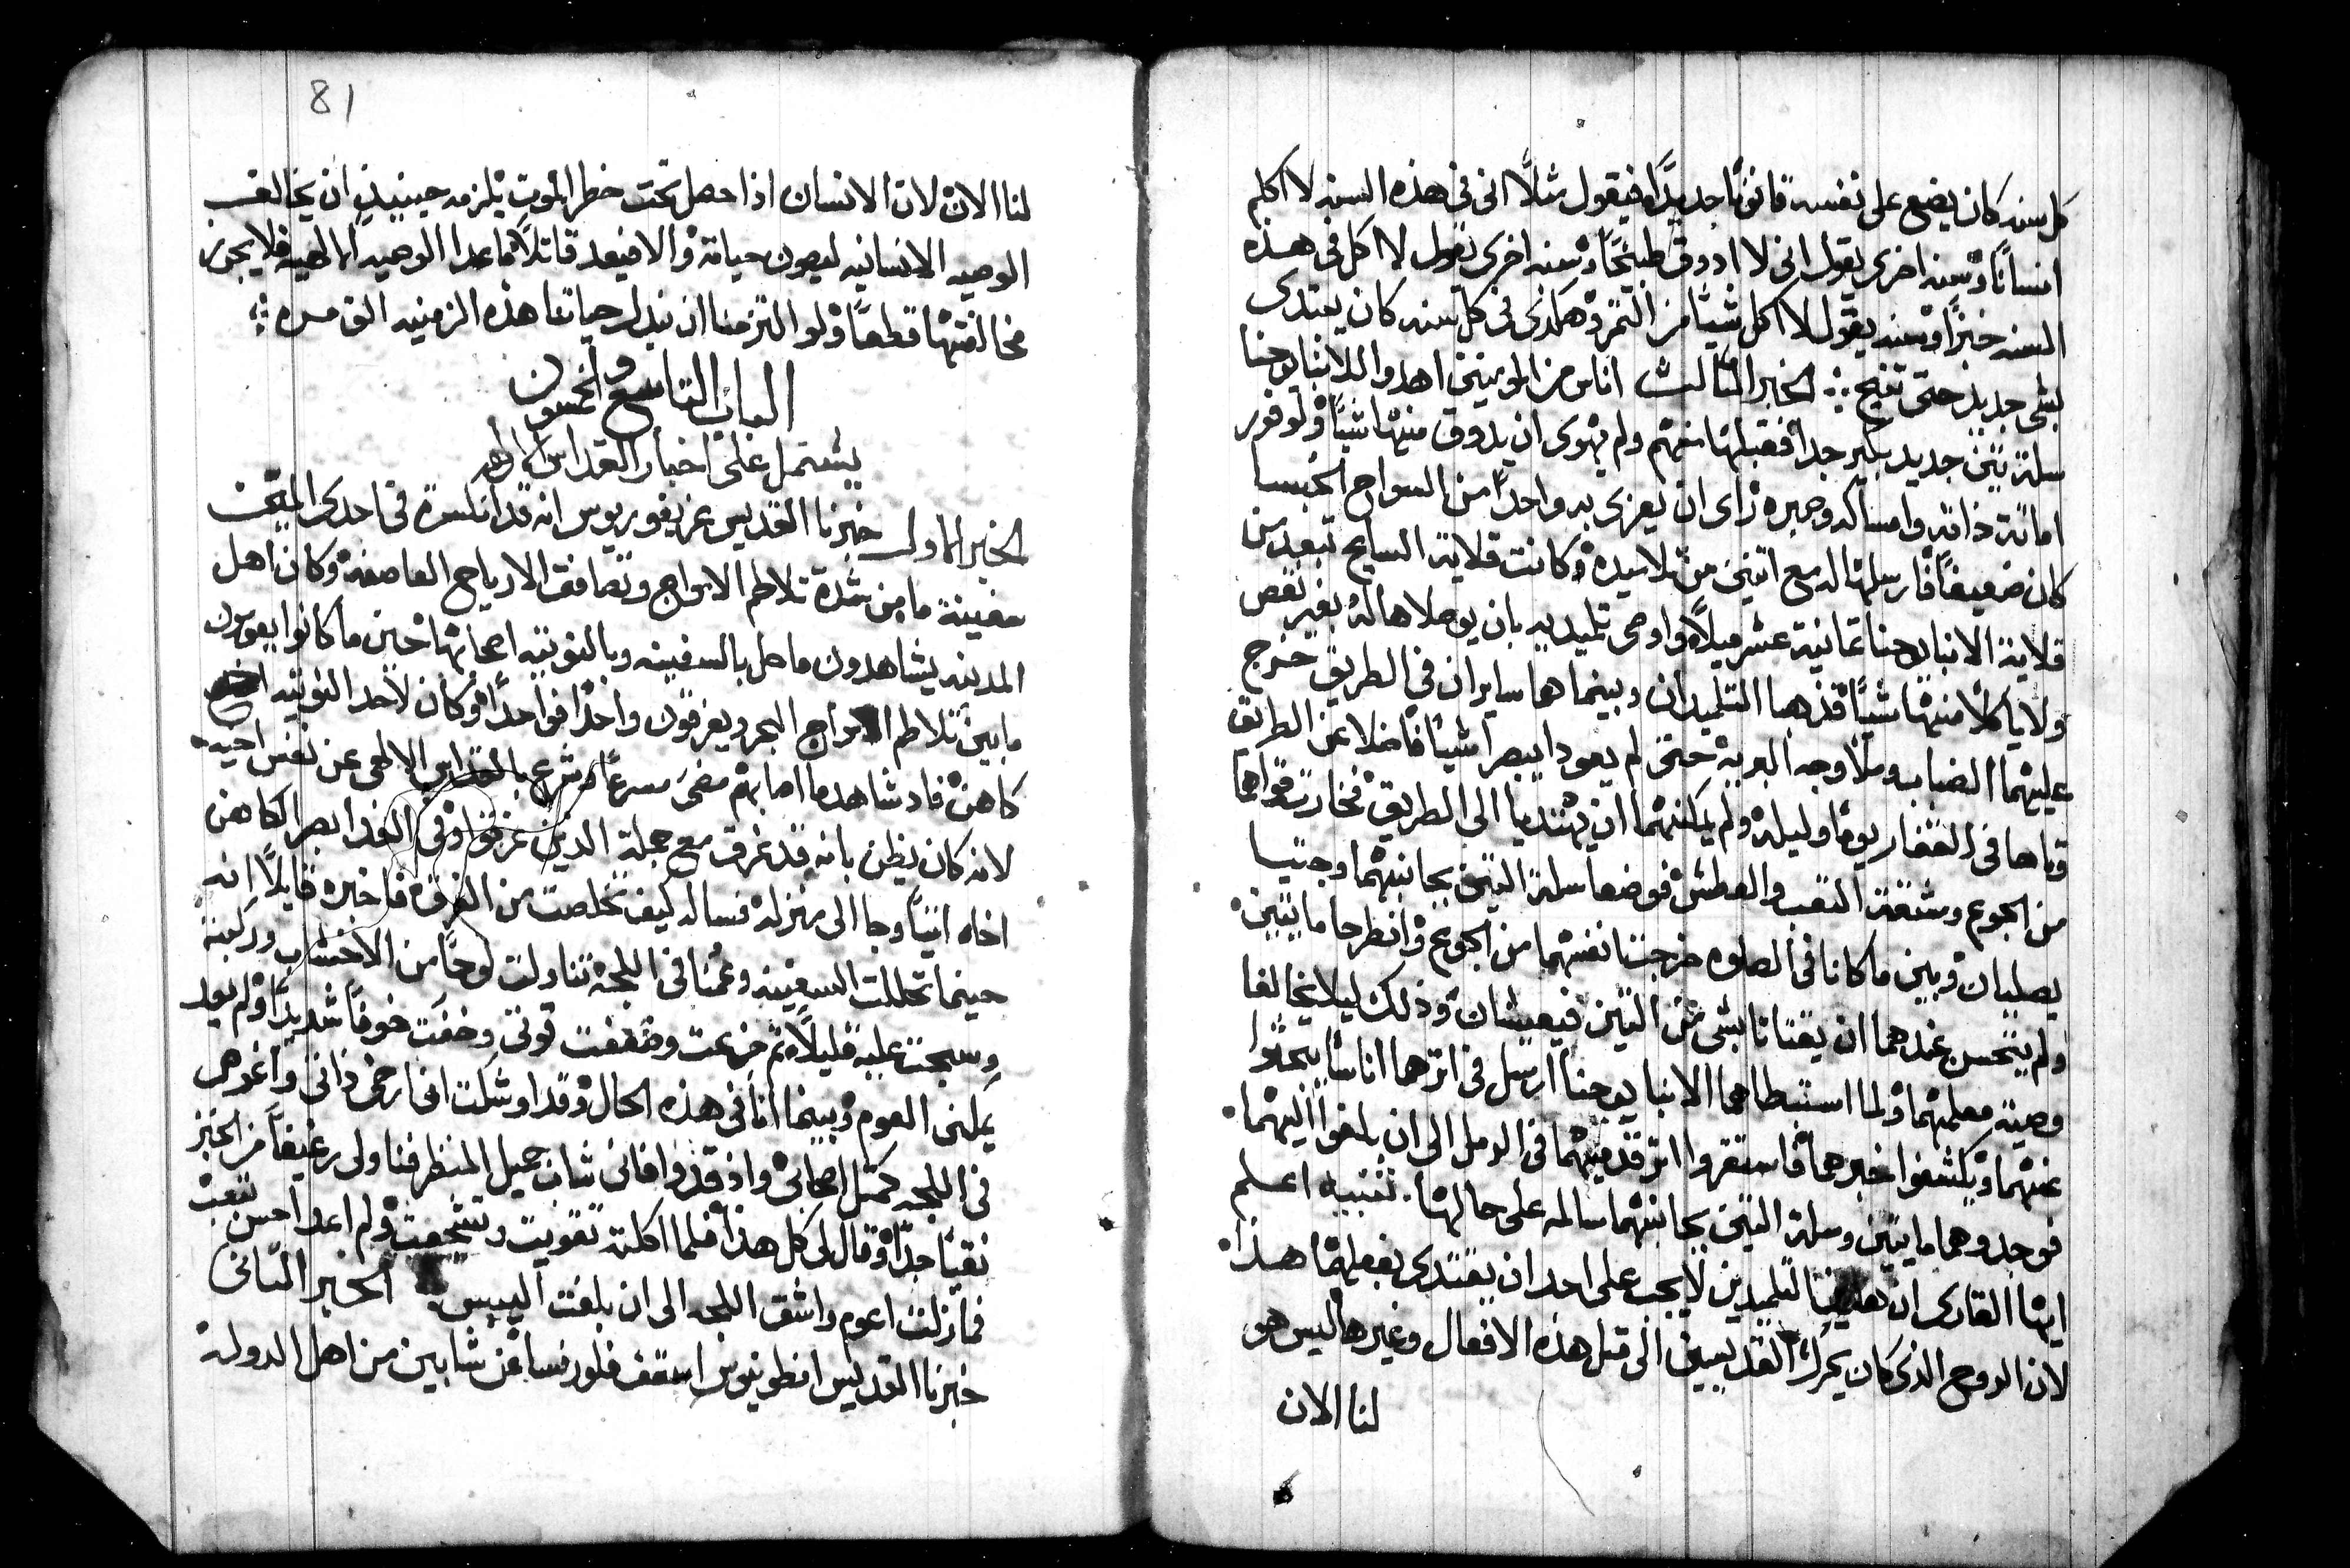 كل سنه كان يضع على نفسه قانونًا جديدًا فيقول مثلًا انى فى هذه السنه لا اكلم
انسانًا وسنه اخرى يقول انى لا ادوق طبيخًا وسنه اخرى يقول لا اكل فى هذه
السنه خبزًا وسنه يقول لا اكل شيًا من التمر وهكذى فى كل سنه كان يبتدى
بشى جديد حتى تنيح ؞ الخبر الثالث اناس من المومنين اهدوا للانبا يوحنا
سلة تين جديد بكير جدًا فقبلها منهم ولم يهوى ان يدوق منها شيًا ولوفور
اماتة ذاته وامساكه وصبره راى ان يعزى به واحدًا من السواح الحبسا
كان ضعيفًا فارسلها له مع اتنين من تلاميده وكانت قلاية السايح تبعد من
قلاية الانبا يوحنا تمانية عشر ميلًا واوصى تلميديه بان يوصلاها له بغير نقص
ولا ياكلا منها شيًا فذهبا التلميدان وبينما هما سايران فى الطريق خرج
عليهما الضباب وملا وجه البريه حتى لم يعودا يبصرا شيًا فاضلا عن الطريق
وتاها فى القفار يومًا وليله ولم يمكنهما ان يهتديا الى الطريق فخارت قواهما
من الجوع ومشقة التعب والعطش فوضعا سلة التين بجانبهما وجتيا
يصليان وبين ما كانا فى الصلوه خرجت انفسهما من الجوع وانطرحا مايتين
ولم يتحسن عندهما ان يقتاتا بشى من التين فيعيشان وذلك ليلا يخالفا
وصية معلمهما ولما استبطاهما الانبا يوحنا ارسل فى اترهما اناسًا يبحتوا
عنهما ويكشفوا خبرهما فاستقروا اتر قدميهما فى الرمل الى ان بلغوا اليهما
فوجدوهما مايتين وسلة التين بجانبهما سالمه على حالها تنبيه اعلم
ايها القارى ان هذين التلميدين لا يجب على احد ان يقتدى بفعلهما هذا
لان الروح الذى كان يحرك القديسين الى متل هذه الافعال وغيرها ليس هو
لنا الان
81
لنا الان لان الانسان اذا حصل تحت خطر الموت يلزمه حينيذ ان يخالف
الوصيه الانسانيه ليصون حياته والا فيعد قاتلًا ما عدا الوصيه الالهيه فلا يجوز
مخالفتها قطعًا ولو التزمنا ان نبدل حياتنا هذه الزمنيه القـ ـره ؞
الباب التاسع والخمسون
يشتمل على اخبار القداس الالهى
الخبر الاول خبرنا القديس غريغوريوس انه قد انكسرة فى احدى المين
سفينة ما من شدة تلاطم الامواج وتصافق الارياح العاصفه وكان اهل
المدينه يشاهدون ما حل بالسفينه وبالنوتيه اصحابها حين ما كانوا يعومون
ما بين تلاطم امواج البحر ويغرقون واحدًا فواحدًا وكان لاحد النوتيه اخ
كاهن فاد شاهد ما اصابهم مضى مسرعًا وشرع بالقداس الالهى عن نفس اخيه
لانه كان يظن بانه قد غرق مع جملة الذين غرقوا وفى الغد ابصر الكاهن
اخاه اتيًا وجا الى منزله فساله كيف تخلصت من الغرق فاخبره قايلًا انه
حينما تحللت السفينه وعمنا فى اللجه تناولت لوحًا من الاخشاب وركبته
وسبحت عليه قليلًا تم جزعت وضعفت قوتى وخفت خوفًا شديدًا ولم يعد
يمكنى العوم وبينما انا فى هذه الحال وقد اوشكت انى ارخى ذاتى واغرق
فى اللجه كمتل اصحابى واذ قد وافانى شاب جميل المنظر فناولنى رغيفًا من الخبز
نقيًا جدًا وقال لى كل هذا فلما اكلته تقويت وتشجعت ولم اعد احس بتعب
فما زلت اعوم واشق اللجه الى ان بلغت اليبس الخبر التانى
خبرنا القديس انطونيوس اسقف فلورنسا عن شابين من اهل الدوله